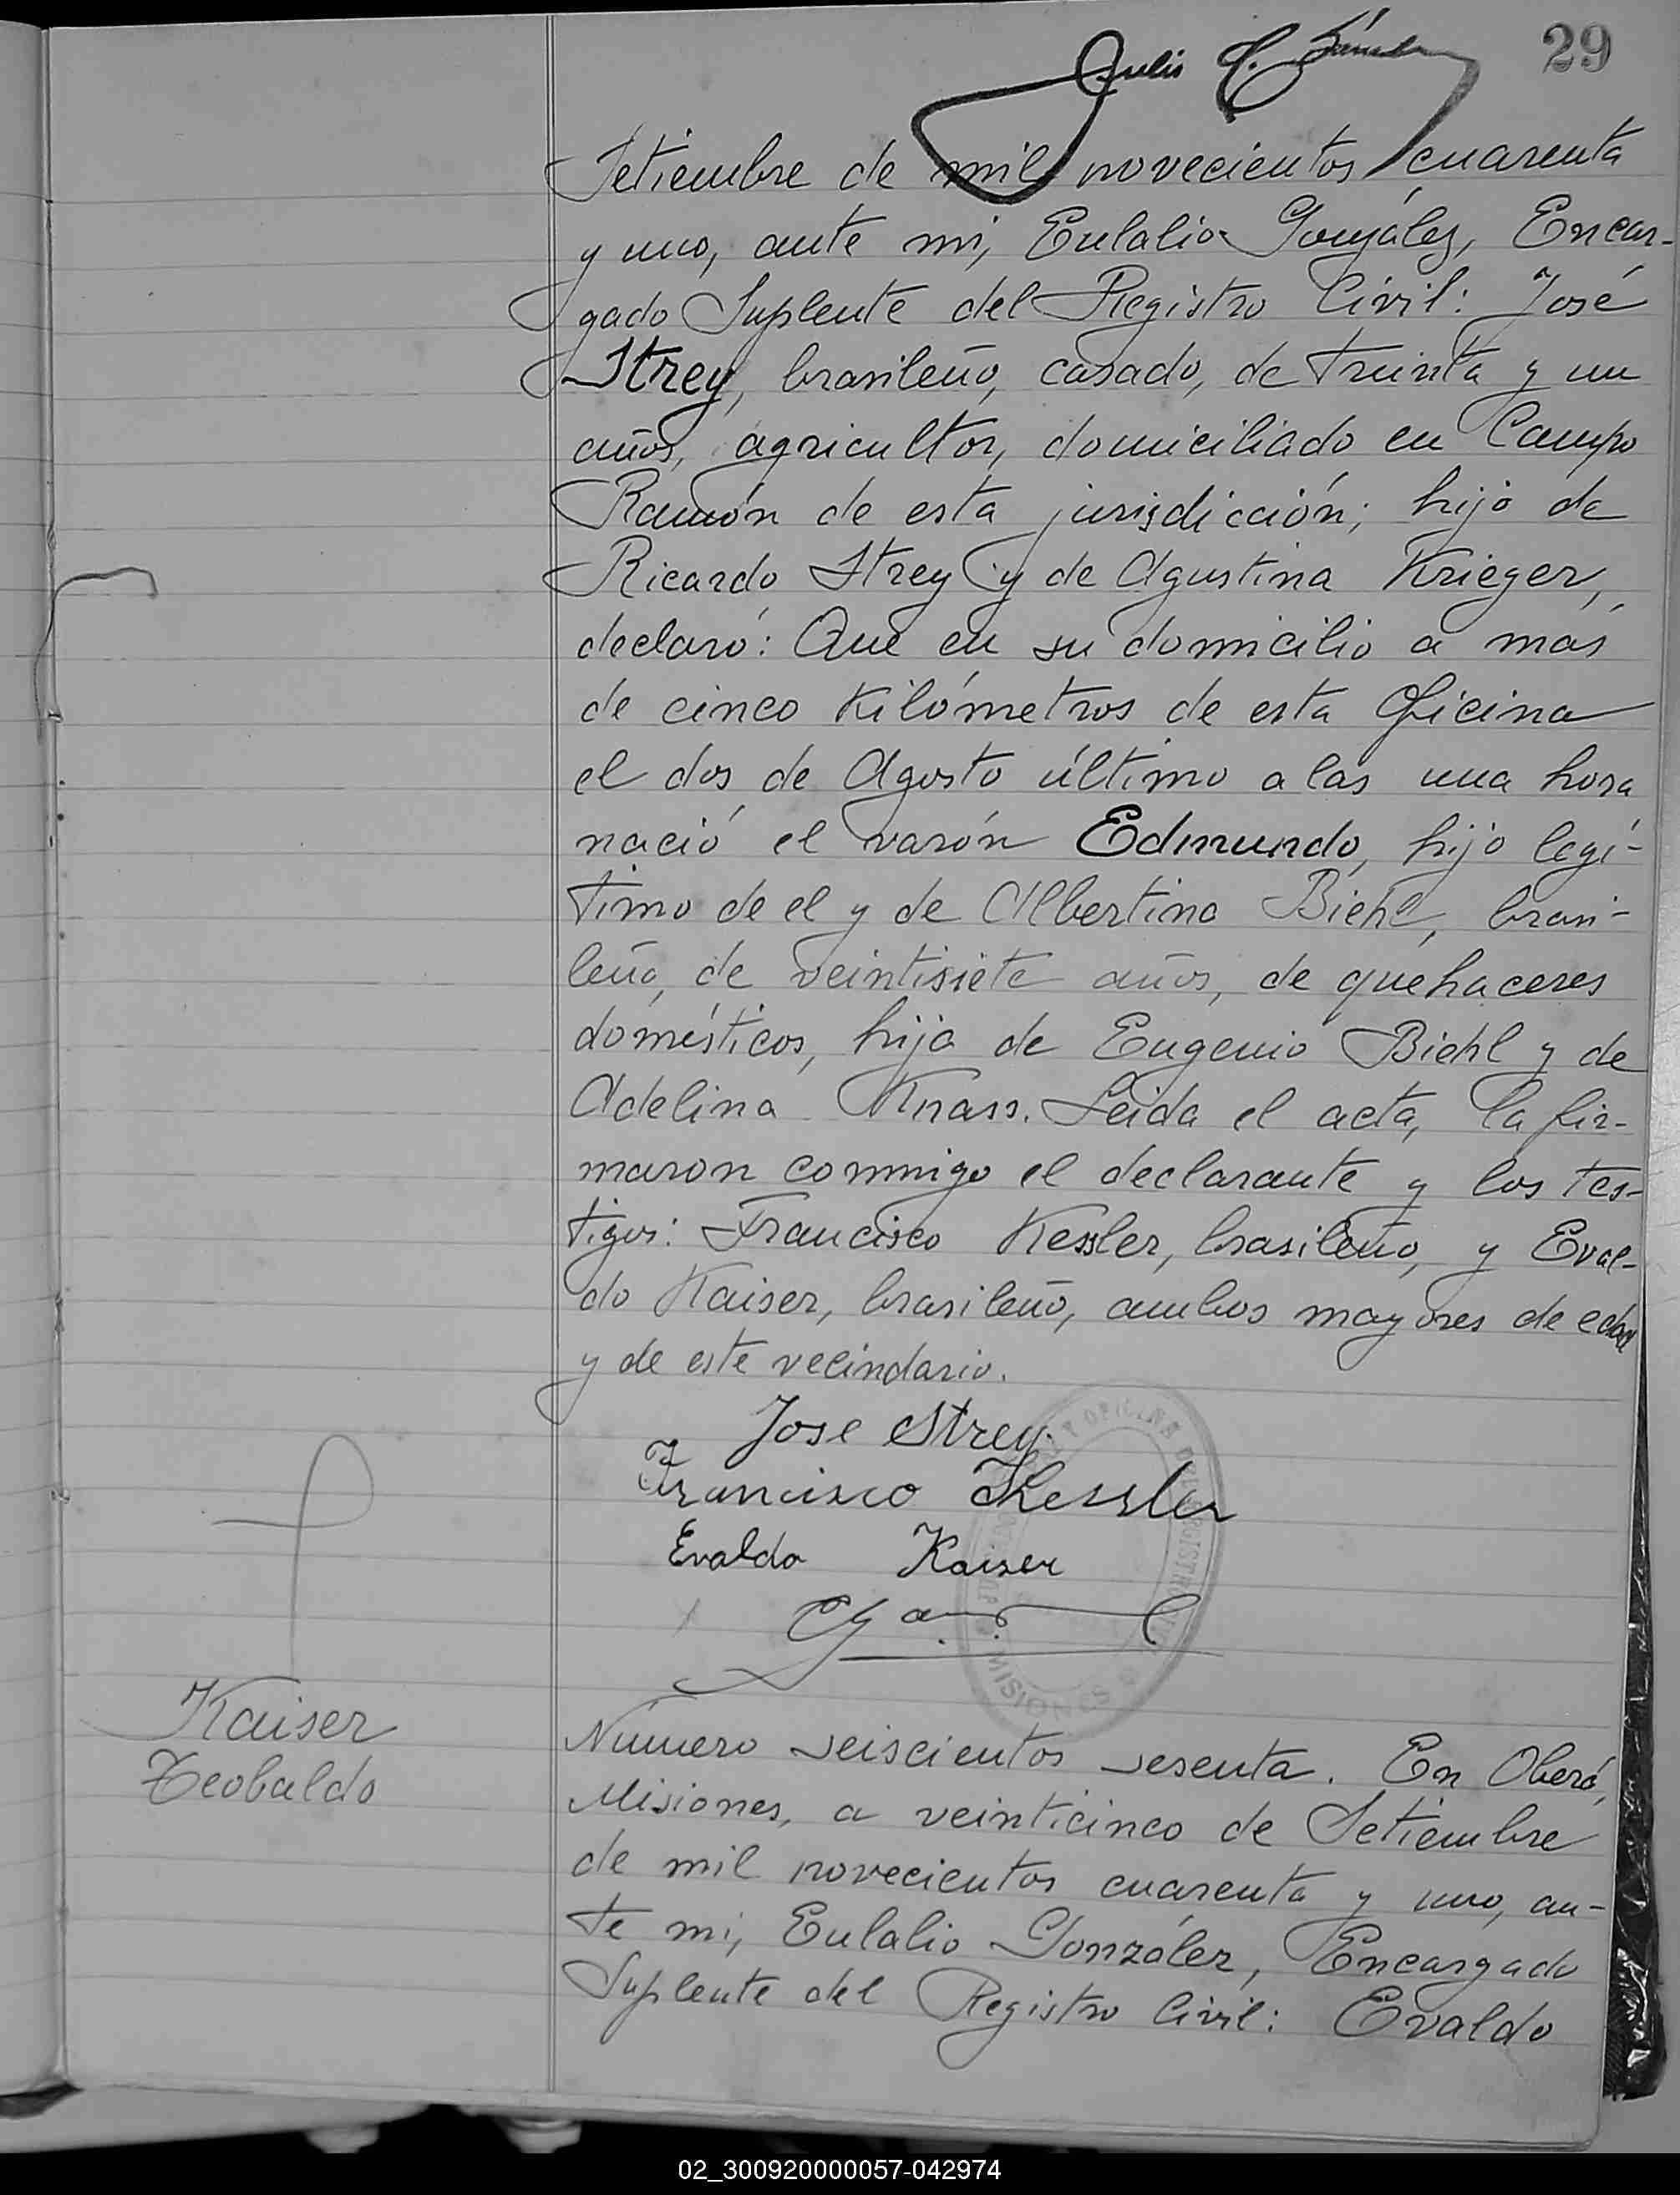 29
Julio C. Sánchez
Setiembre de mil novecientos cuarenta
y uno, ante mi, Eulalio González, Encar-
gado Suplente del Registro Civil: José
Strey, brasileño, casado, de treinta y un
años, agricultor, domiciliado en Campo
Ramón de esta jurisdicción; hijo de
Ricardo Strey y de Agustina Krieger,
declaró: Que en su domicilio a mas
de cinco kilómetros de esta Oficina
el dos de Agosto último a las una hora
nació el varón Edmundo, hijo legí-
timo de el y de Albertina Biehl, brasi-
leña, de veintisiete años, de quehaceres
domésticos, hija de Eugenio Biehl y de
Adelina Knass. Leida el acta, la fir-
maron conmigo el declarante y los tes-
tigos: Francisco Kessler, brasileño, y Eval-
do Kaiser, brasileño, ambos mayores de edad
y de este vecindario.
Jose Strey.
Francisco Kessler
Evaldo Kaiser
MISIONES
Kaiser
Teobaldo
Número seiscientos sesenta. En Oberá,
Misiones, a veinticinco de Setiembre
de mil novecientos cuarenta y uno, an-
te mi, Eulalio González, Encargado
Suplente del Registro Civil: Evaldo
02_300920000057-042974